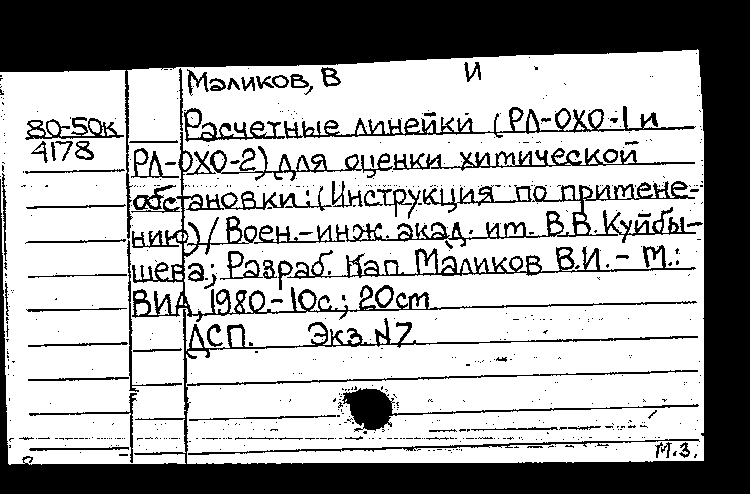 Маликов, В И
80-50к Расчетные линейки (РЛ-ОХО-1 и
4178 РЛ-ОХО-2) для оценки химической
обстановки: (Инструкция по примене-
нию) / Воен.-инж. акад. им. В.В. Куйбы-
шева; Разраб. Кап. Маликов В.И. - М.:
ВИА, 1980.- 10с.; 20см
ДСП. Экз. N7.
М.З.